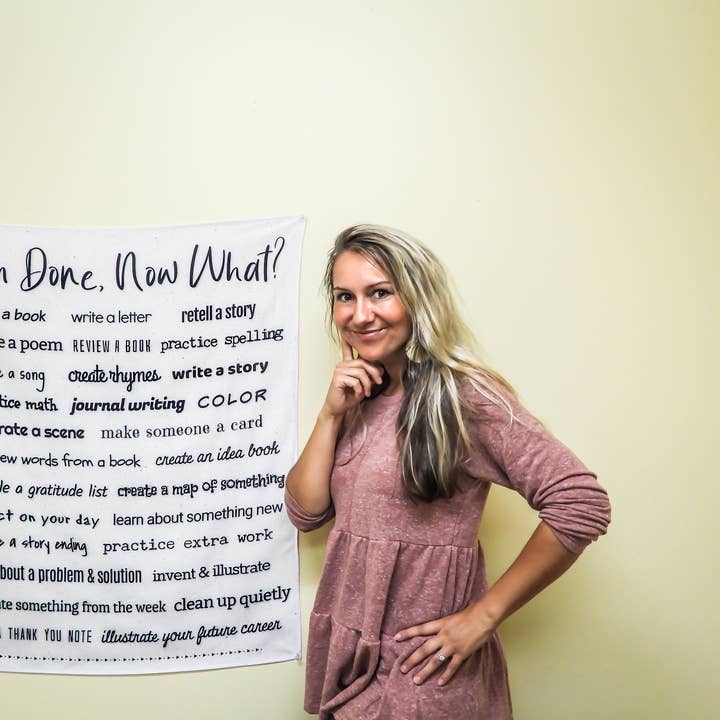 Done, Now What?
a book write a letter retell a story
a poem REVIEW A BOOK practice spelling
a song create rhymes write a story
math journal writing COLOR
a scene make someone a card
new words from a book create an idea book
a gratitude list create a map of something
on your day learn about something new
a story ending practice extra work
about a problem & solution invent & illustrate
something from the week clean up quietly
THANK YOU NOTE illustrate your future career